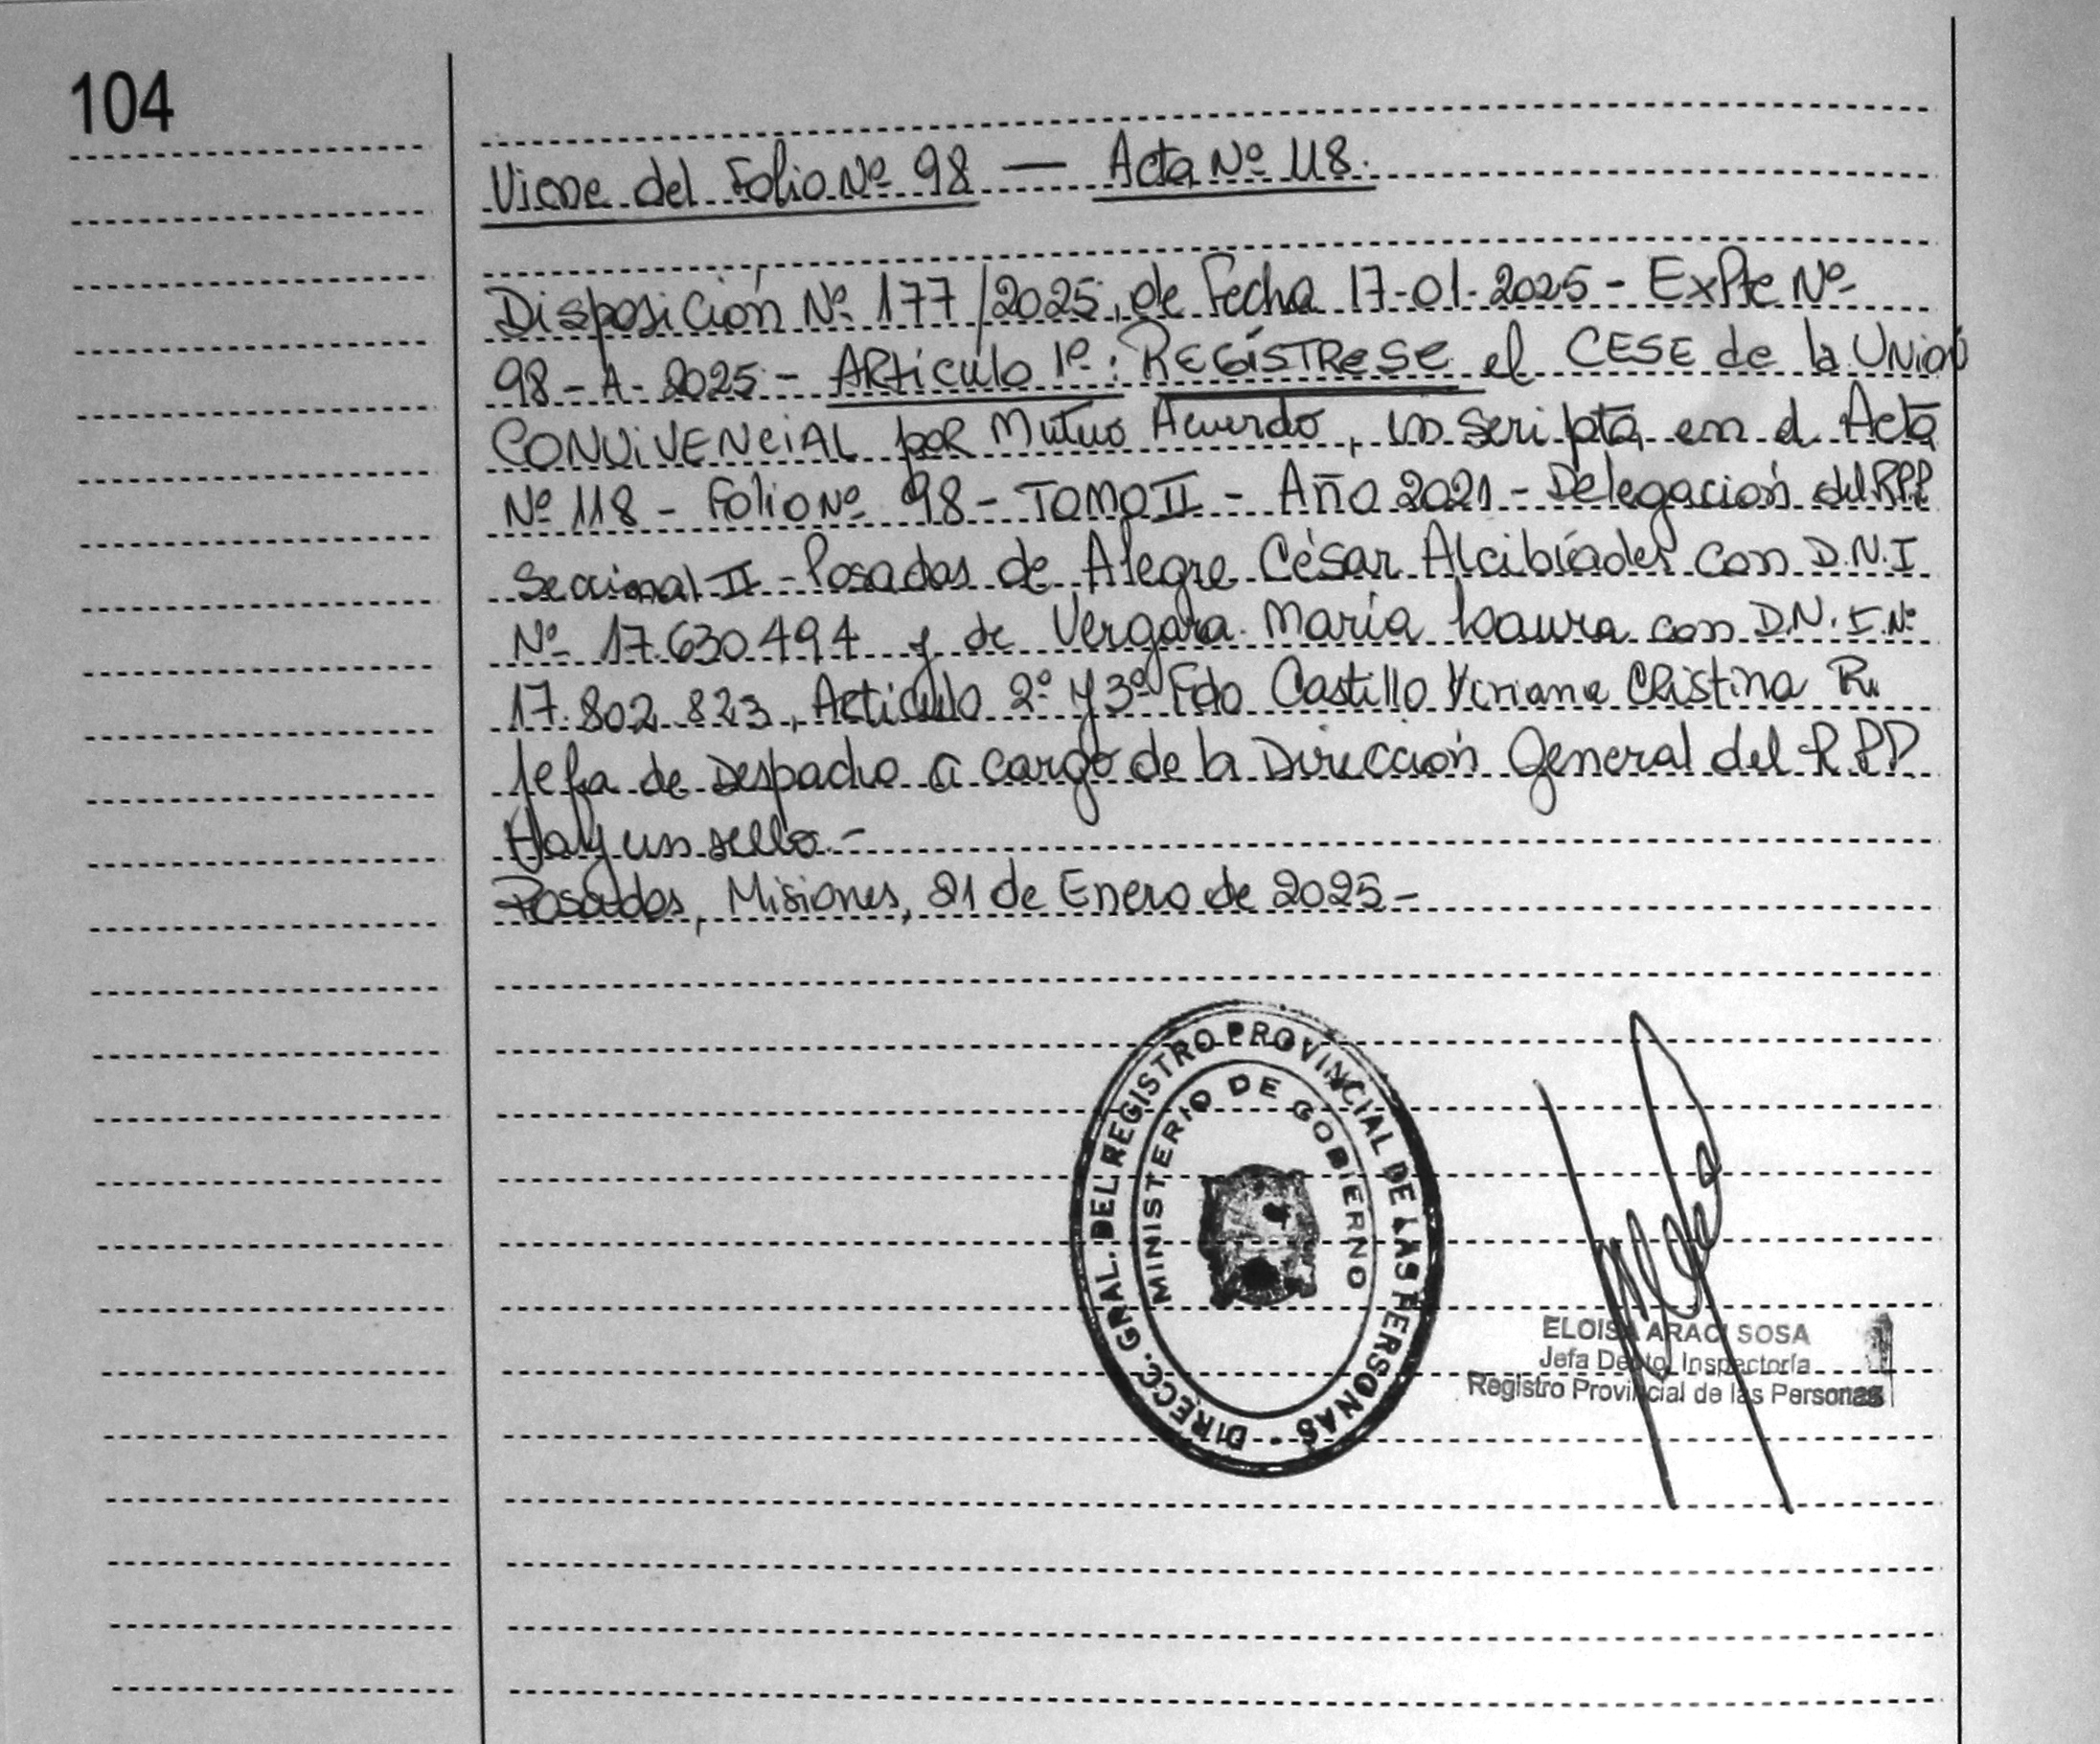 104
Viene del Folio Nº 98 — Acta Nº 118.
Disposición Nº 177/2025, de Fecha 17-01-2025 - Expte Nº
98-A-2025 - ARticulo 1º: REGÍSTRESE el CESE de la UNión
CONVIVENCIAL por Mutuo Acuerdo, inscripta en el Acta
Nº 118 - Folio Nº 98 - TOMO II - Año 2021 - Delegación del RPP
Seccional II - Posadas de Alegre César Alcibíades con D.N.I
Nº 17.630.494 y de Vergara María Laura con D.N.I.Nº
17.802.823, Articulo 2º y 3º Fdo Castillo Viviana Cristina R.
Jefa de Despacho a cargo de la Dirección General del RPP
Hay un sello.-
Posadas, Misiones, 21 de Enero de 2025-
DIRECC. GRAL. DEL REGISTRO PROVINCIAL DE LAS PERSONAS -
MINISTERIO DE GOBIERNO
ELOISA ARACI SOSA
Jefa Depto. Inspectoría
Registro Provincial de las Personas